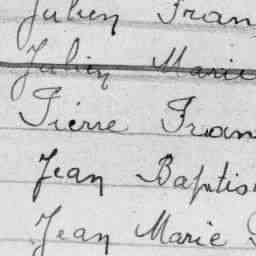 Julien Fran
Julien Marie
Pierre Fran
Jean Baptis
Jean Marie